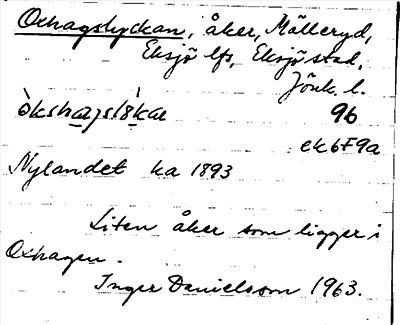 Oxhagslyckan, åker, Mölleryd,
Eksjö lfs, Eksjö stad,
Jönk. l.
96
ek6F9a
Nylandet ha 1893
Liten åker som ligger i
Oxhagen.
Inger Danielsson 1963.